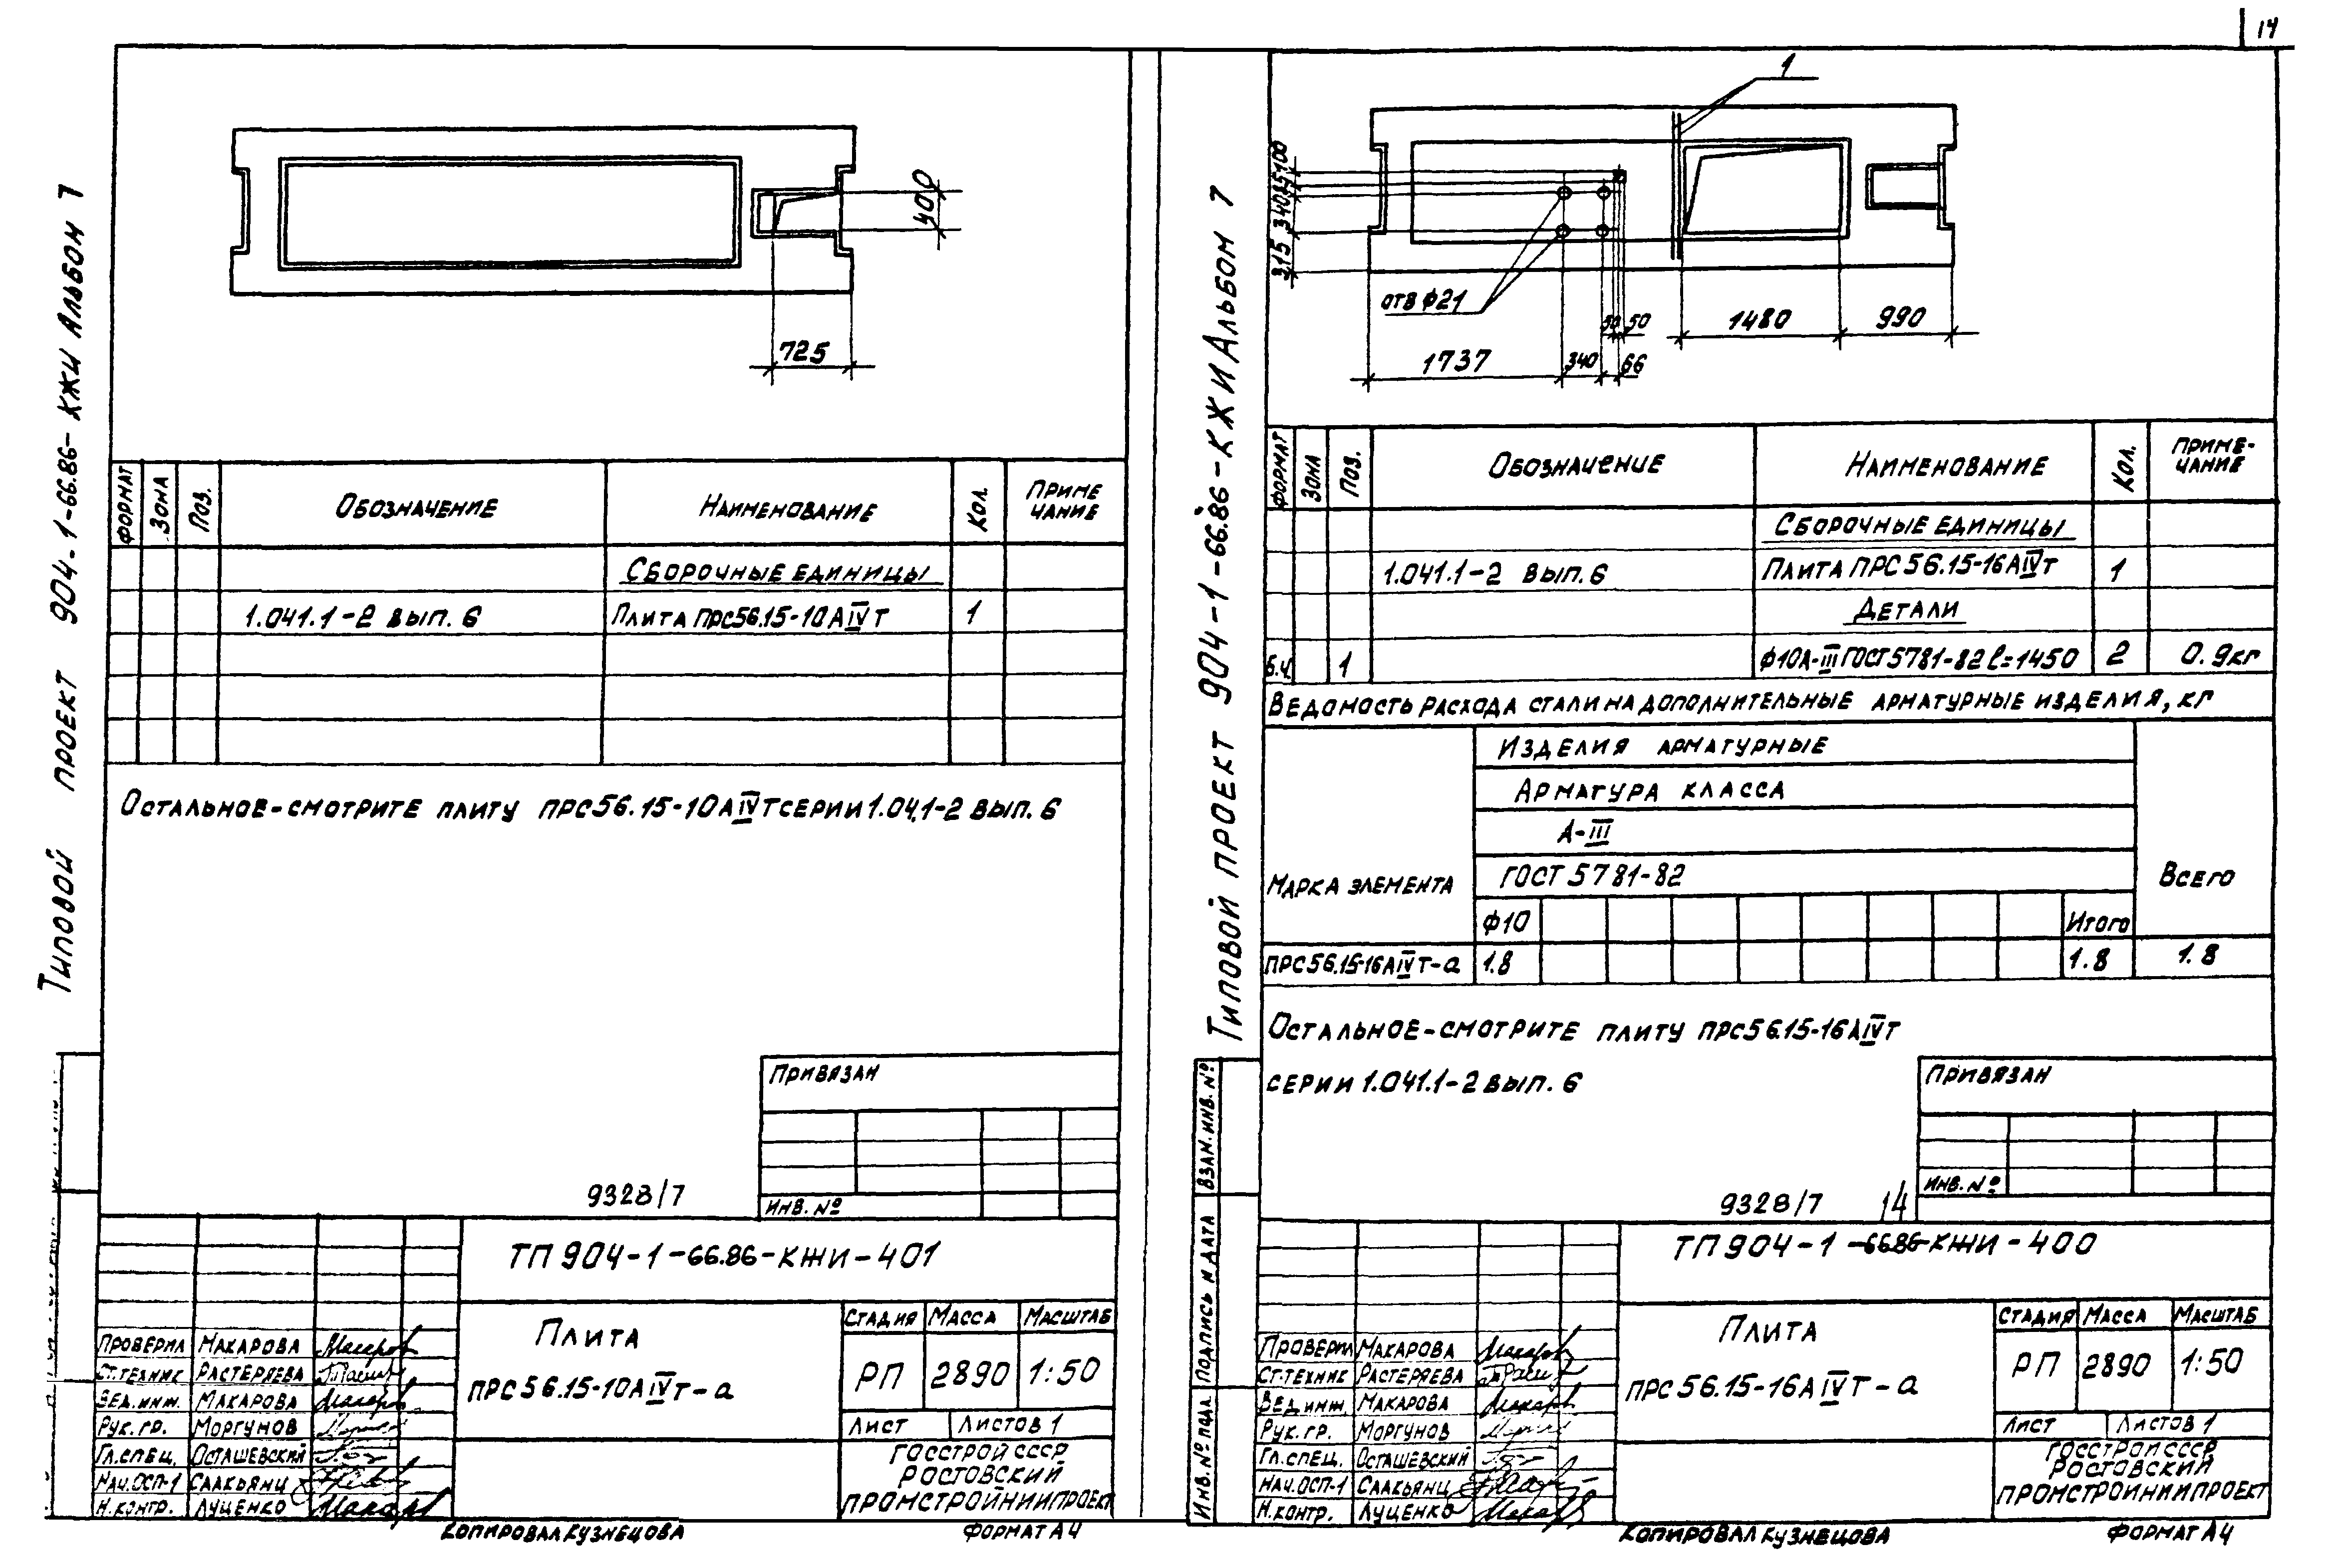 14
Типовой проект 904-1-66.86-КЖИ Альбом 7
400
725
Формат Зона Поз. Обозначение Наименование Кол. Приме
чание
Сборочные единицы
1.041.1-2 вып. 6 Плита ПРС56.15-10АⅣТ 1
Остальное-смотрите плиту ПРС56.15-10АⅣТ серии 1.041-2 вып. 6
Привязан
Инв. №
9328/7
ТП 904-1-66.86-КЖИ-401
Плита
ПРС56.15-10АⅣТ-а
Стадия Масса Масштаб
РП 2890 1:50
Лист Листов 1
Госстрой СССР
Ростовский
Промстройниипроект
Проверил Макарова
Ст.техник Растеряева
Вед.инж. Макарова
Рук.гр. Моргунов
Гл.спец. Осташевский
Нач.ОСП-1 Саакьянц
Н.контр. Луценко
Копировал Кузнецова
Формат А4
Типовой проект 904-1-66.86-КЖИ Альбом 7
1
100
85
340
315
отв ф21
50 50
1480
990
1737
340
66
Формат Зона Поз. Обозначение Наименование Кол. Приме-
чание
Сборочные единицы
1.041.1-2 вып. 6 Плита ПРС56.15-16АⅣТ 1
Детали
б.ч. 1 Ф10А-Ⅲ ГОСТ 5781-82 ℓ=1450 2 0.9кг
Ведомость расхода стали на дополнительные арматурные изделия, кг
Марка элемента
Изделия арматурные
Арматура класса
А-Ⅲ
ГОСТ 5781-82
Ф10 Итого
Всего
ПРС56.15-16АⅣТ-а 1.8 1.8 1.8
Остальное-смотрите плиту ПРС56.15-16АⅣТ
серии 1.041.1-2 вып. 6
Привязан
Инв. №
9328/7 14
Взам. инв. №
Подпись и дата
Инв. № подл.
ТП 904-1-66.86-КЖИ-400
Плита
ПРС56.15-16АⅣТ-а
Стадия Масса Масштаб
РП 2890 1:50
Лист Листов 1
Госстрой СССР
Ростовский
Промстройниипроект
Проверил Макарова
Ст.техник Растеряева
Вед.инж. Макарова
Рук.гр. Моргунов
Гл.спец. Осташевский
Нач.ОСП-1 Саакьянц
Н.контр. Луценко
Копировал Кузнецова
Формат А4